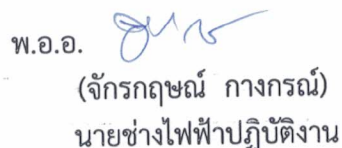 พ.อ.อ.
(จักรกฤษณ์ กางกรณ์)
นายช่างไฟฟ้าปฏิบัติงาน